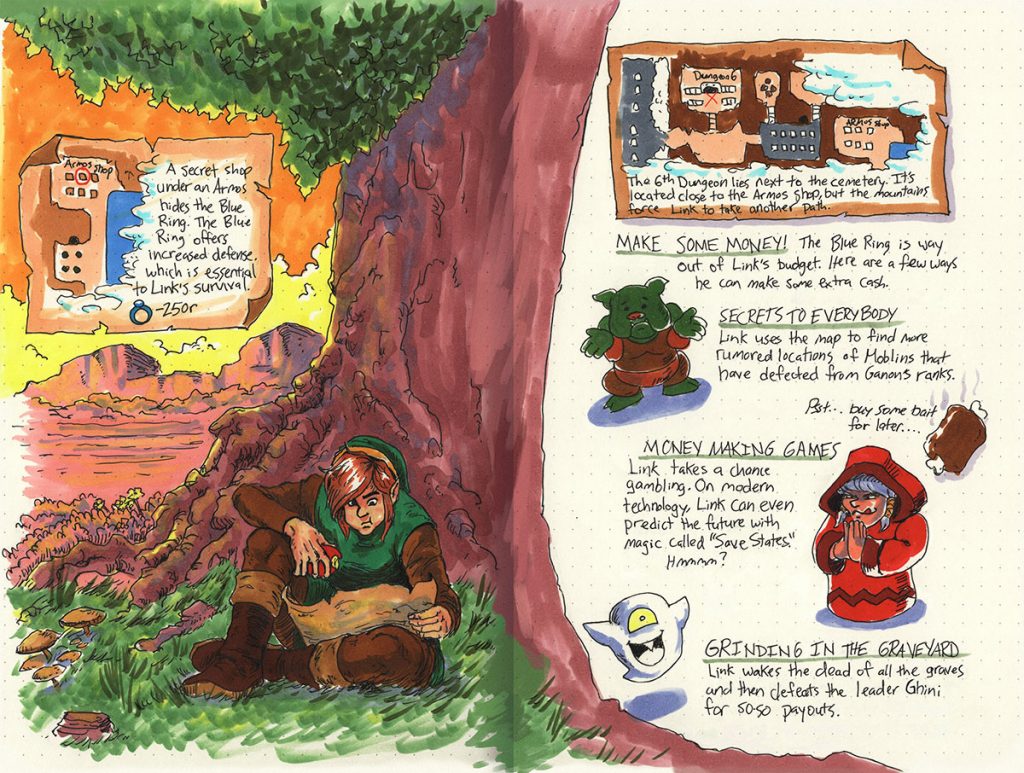 Armos Shop
A secret shop
under an Armos
hides the Blue
Ring. The Blue
Ring offers
increased defense,
which is essential
to Link's survival.
-250r
Dungeon 6
ARMOS Shop
The 6th Dungeon lies next to the cemetery. It's
located close to the Armos Shop, but the mountains
force Link to take another path.
MAKE SOME MONEY! The Blue Ring is way
out of Link's budget. Here are a few ways
he can make some extra cash.
SECRETS TO EVERYBODY
Link uses the map to find more
rumored locations of Moblins that
have defected from Ganons ranks.
Psst... buy some bait
for later....
MONEY MAKING GAMES
Link takes a chance
gambling. On modern
technology, Link can even
predict the future with
magic called "Save States."
Hmmmm?
GRINDING IN THE GRAVEYARD
Link wakes the dead of all the graves
and then defeats the leader Ghini
for 50-50 payouts.